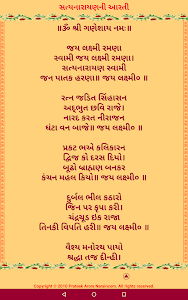 સત્યનારાયણની આરતી
॥ૐ શ્રી ગણેશાય નમઃ॥
જય લક્ષ્મી રમણા
સ્વામી જય લક્ષ્મી રમણા।
સત્યનારાયણ સ્વામી
જન પાતક હરણા॥ જય લક્ષ્મી૦ ॥
રત્ન જડિત સિંહાસન
અદ્ભુત છવિ રાજે।
નારદ કરત નીરાજન
ઘંટા વન બાજે॥ જય લક્ષ્મી૦ ॥
પ્રકટ ભએ કલિકારન
દ્વિજ કો દરસ દિયો।
બૂઢો બ્રાહ્મણ બનકર
કંચન મહલ કિયો॥ જય લક્ષ્મી૦ ॥
દુર્બલ ભીલ કઠારો
જિન પર કૃપા કરી।
ચંદ્રચૂડ ઇક રાજા
તિનકી વિપતિ હરી॥ જય લક્ષ્મી૦ ॥
વૈશ્ય મનોરથ પાયો
શ્રદ્ધા તજ દીન્હી।
Copyright © 2010 Prateek Arora Nanakvani. All rights reserved.